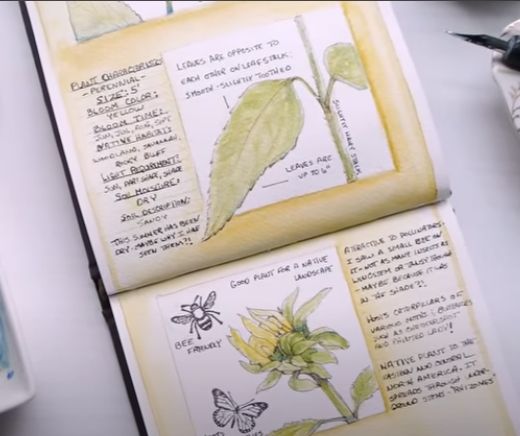 PLANT CHARACTERISTICS
-PERENNIAL-
SIZE: 5'
BLOOM COLOR:
YELLOW
BLOOM TIME:
JUN, JUL, AUG, SEPT
NATIVE HABITAT:
WOODLAND, SAVANNA,
ROCKY BLUFF
LIGHT REQUIREMENT:
SUN, PART SHADE, SHADE
SOIL MOISTURE:
DRY
SOIL DESCRIPTION:
SANDY
THIS SUMMER HAS BEEN
DRY-MAYBE WHY I HAVE
SEEN THEM?!
LEAVES ARE OPPOSITE TO
EACH OTHER ON LEAFSTALK;
SMOOTH-SLIGHTLY TOOTHED
SLIGHTLY HAIRY STALK
LEAVES ARE
UP TO 6"
GOOD PLANT FOR A NATIVE
LANDSCAPE
BEE
FRIENDLY
ATTRACTIVE TO POLLINATORS-
I SAW A SMALL BEE ON
IT-NOT AS MANY INSECTS AS
-MAYBE BECAUSE IT WAS
IN THE SHADE?!
HOSTS CATERPILLARS OF
VARIOUS MOTHS & BUTTERFLIES
SUCH AS
AND PAINTED LADY!
NATIVE PLANT TO THE
EASTERN AND CENTRAL
NORTH AMERICA. IT
SPREADS THROUGH UNDER-
GROUND STEMS: "RHIZOMES"